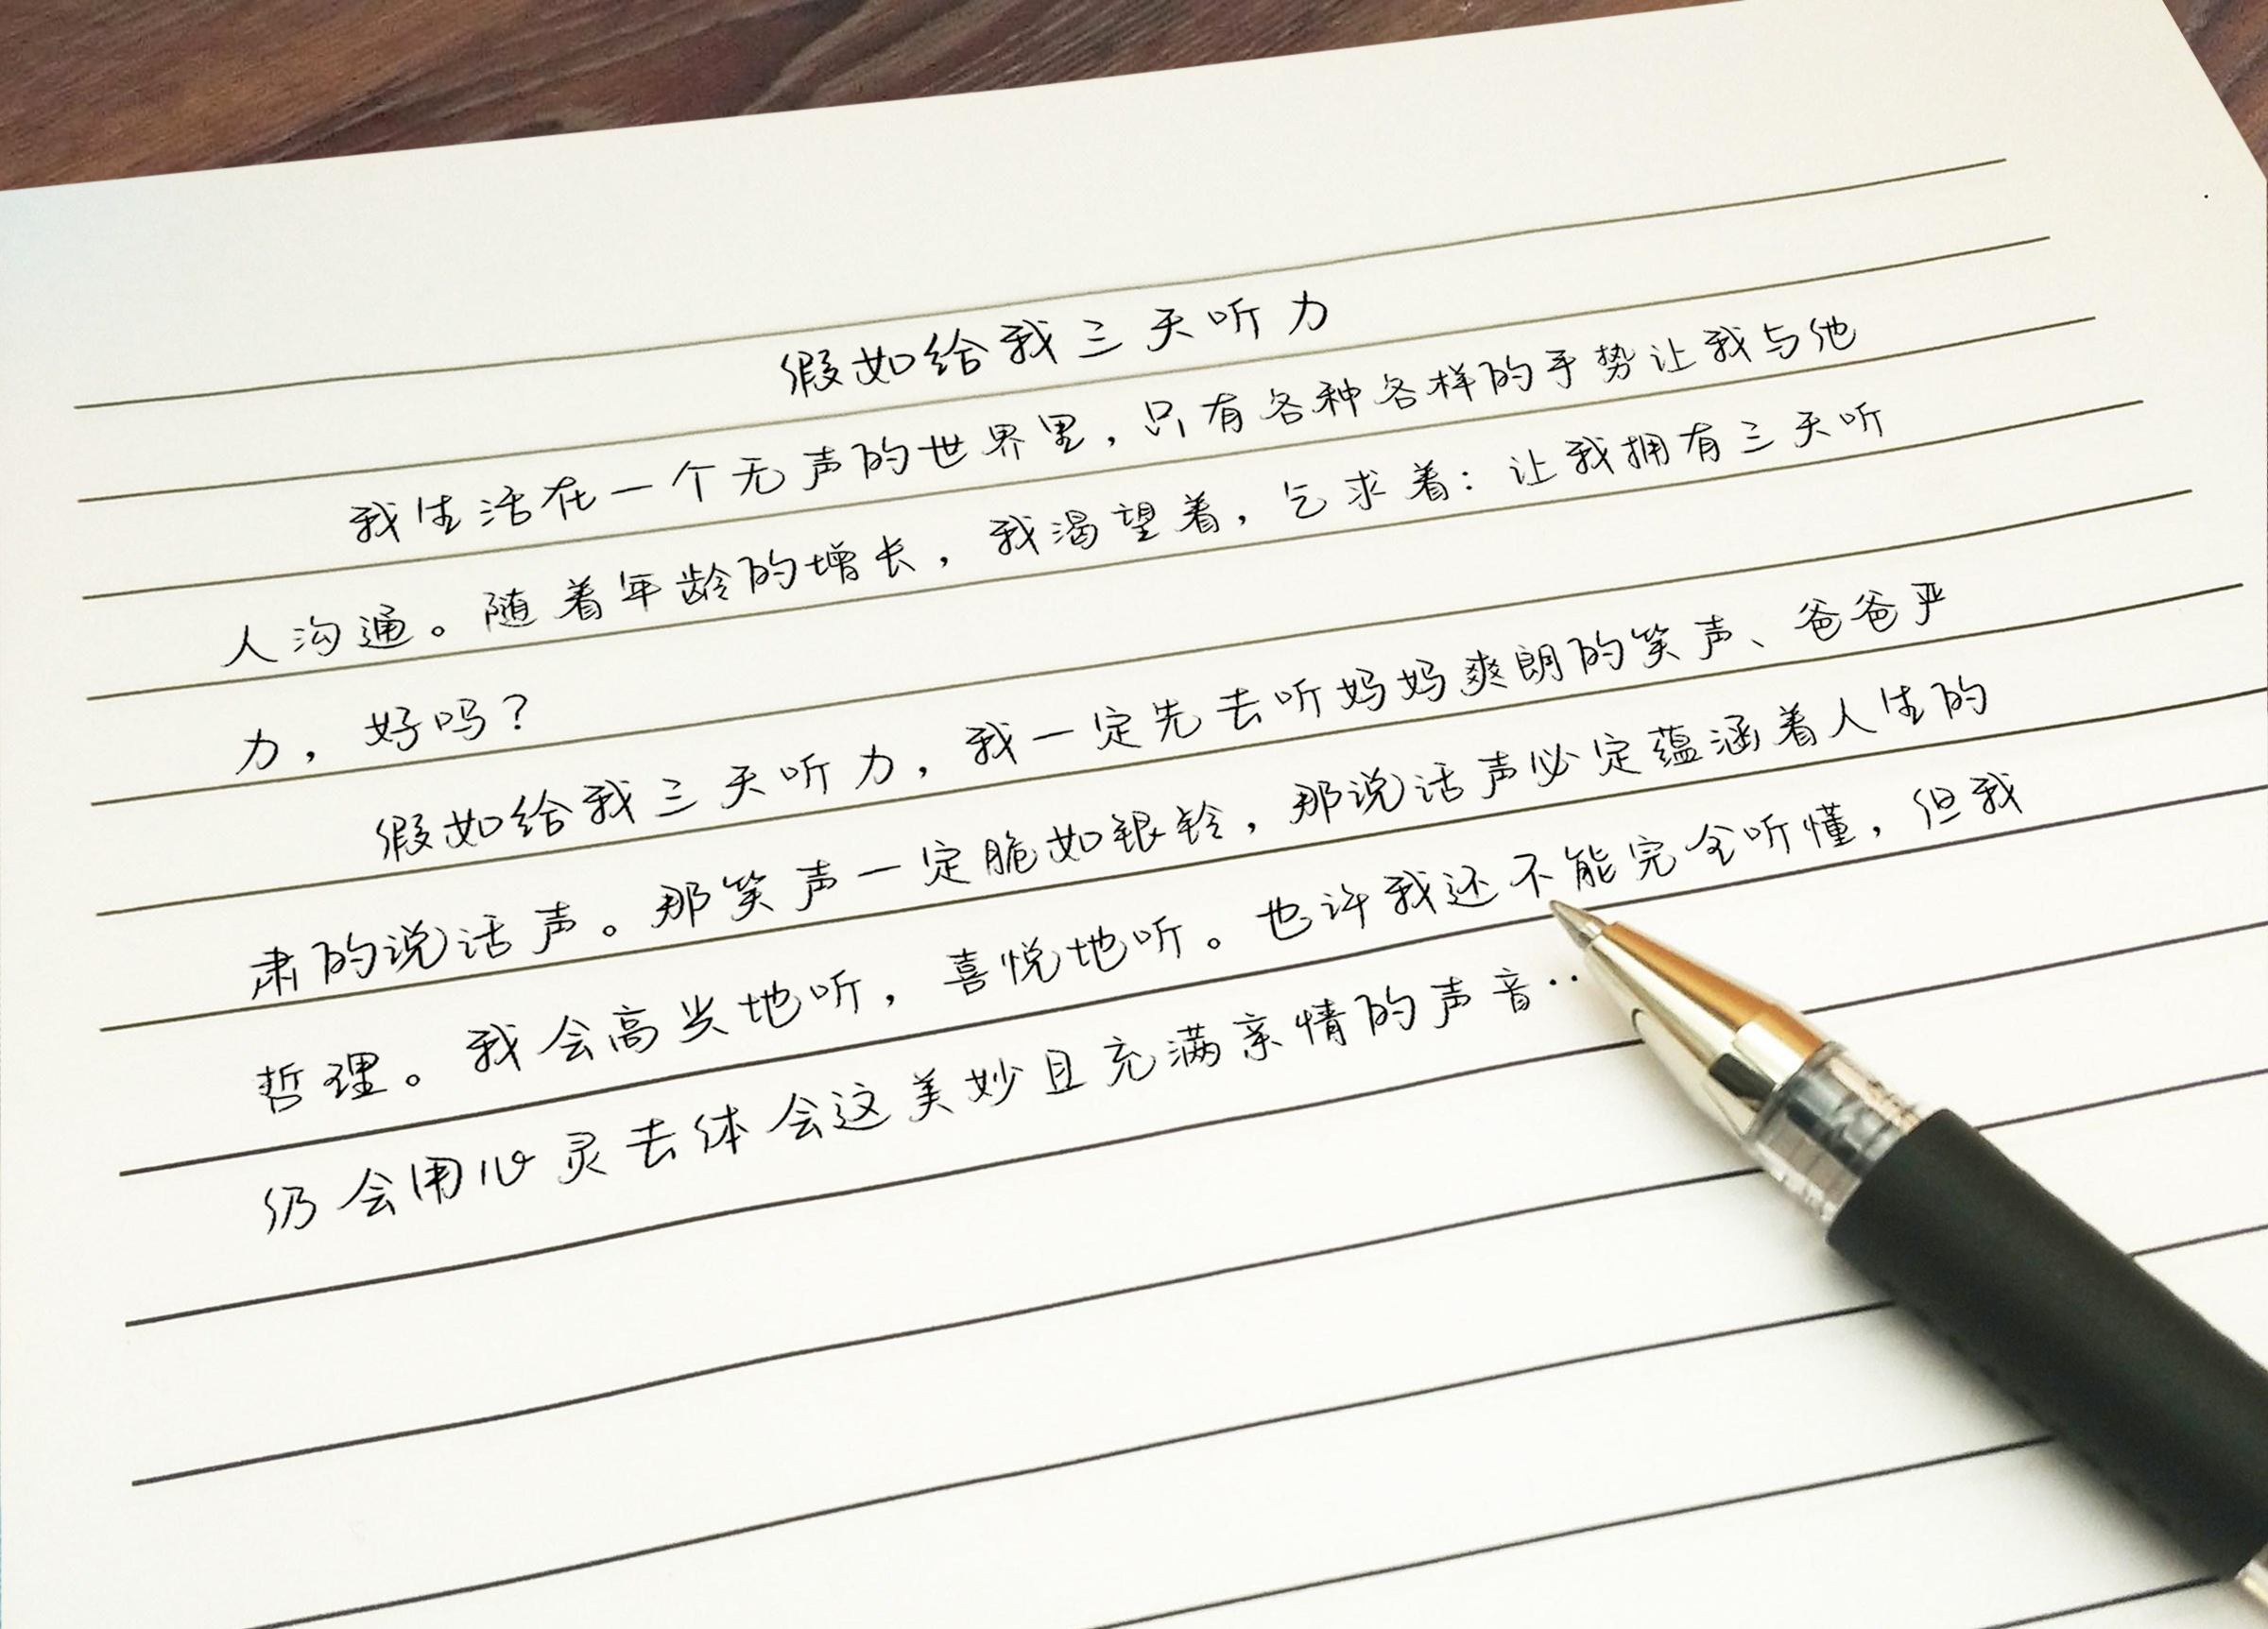 假如给我三天听力
我生活在一个无声的世界里，只有各种各样的手势让我与他
人沟通。随着年龄的增长，我渴望着，乞求着：让我拥有三天听
力，好吗？
假如给我三天听力，我一定先去听妈妈爽朗的笑声、爸爸严
肃的说话声。那笑声一定脆如银铃，那说话声必定蕴涵着人生的
哲理。我会高兴地听，喜悦地听。也许我还不能完全听懂，但我
仍会用心灵去体会这美妙且充满亲情的声音··